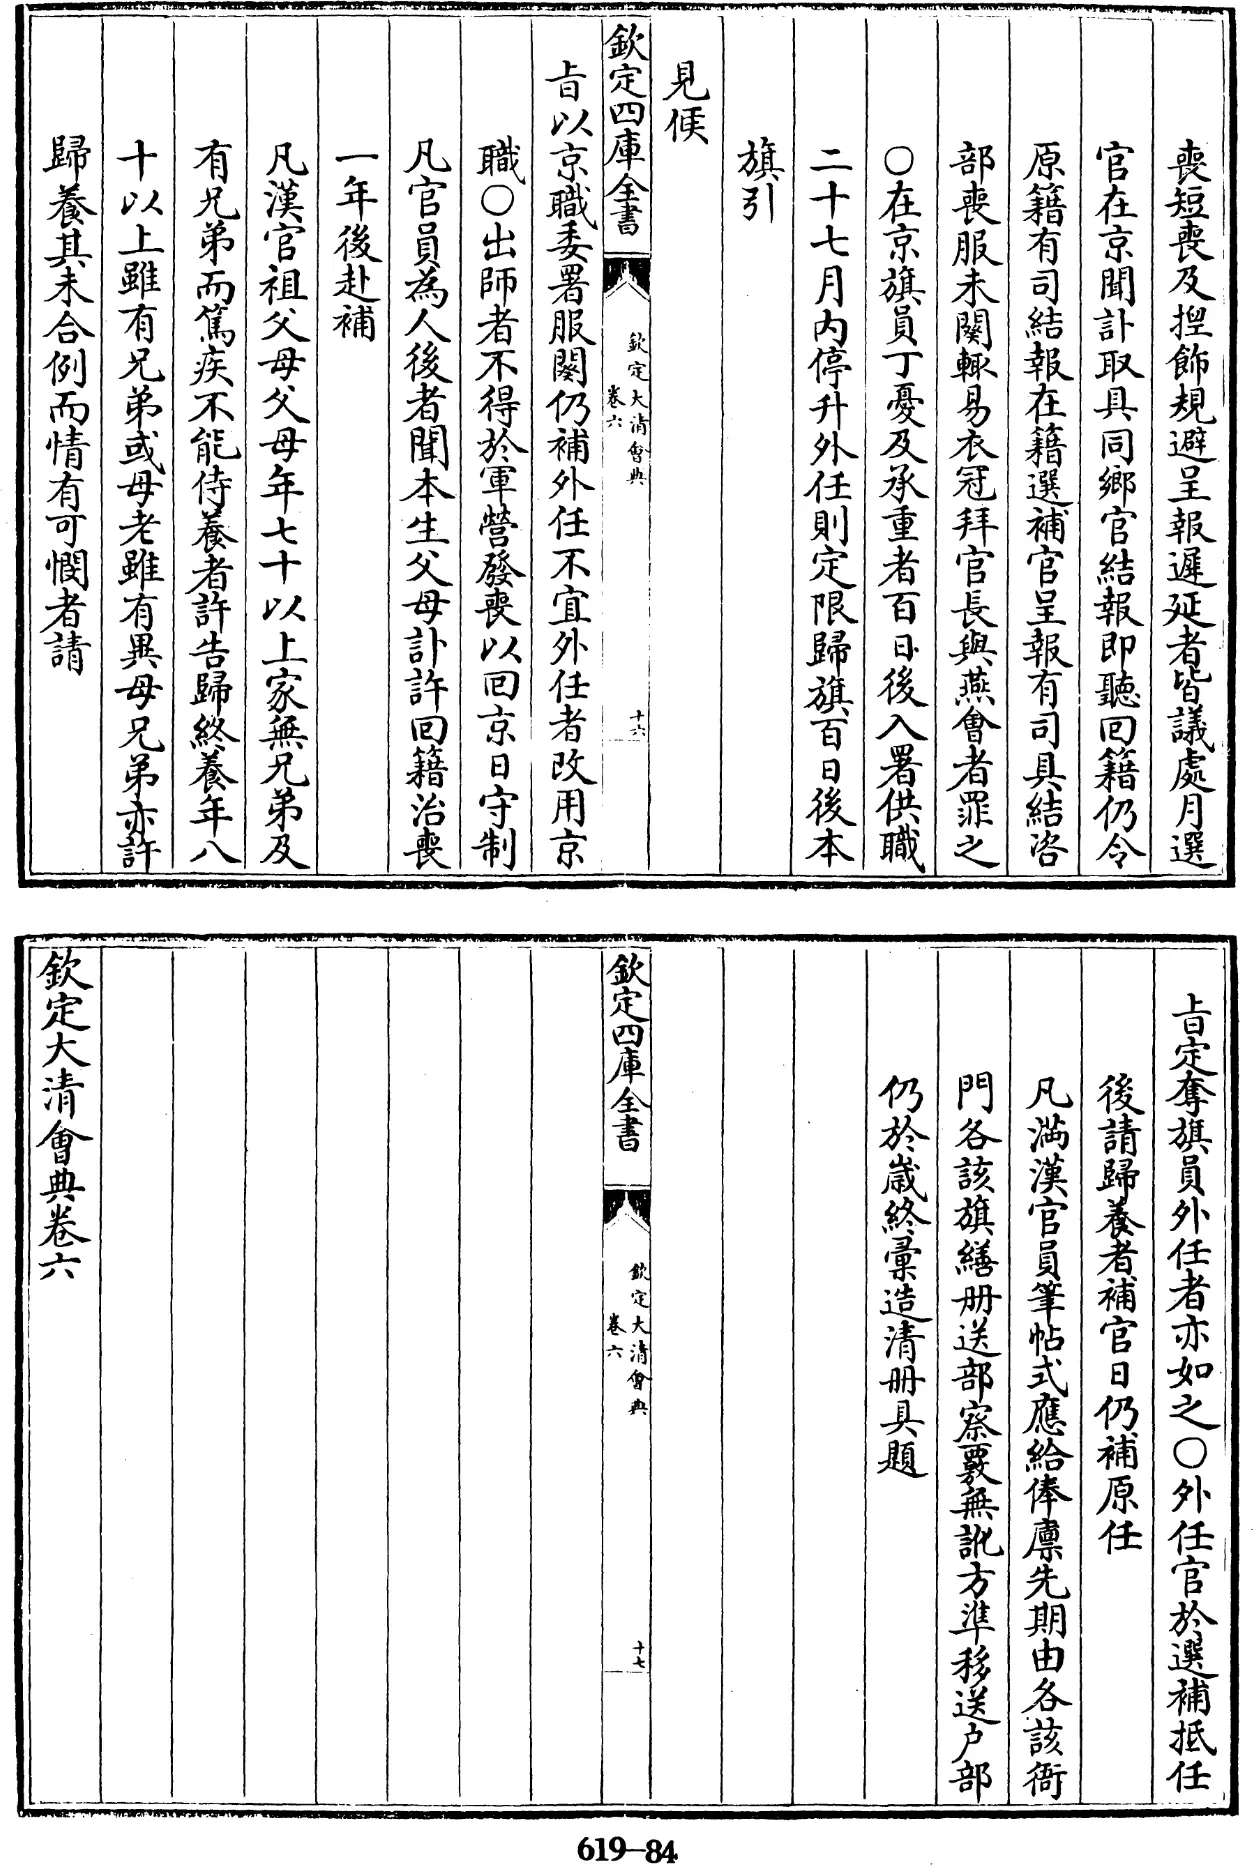 喪短喪及捏飾規避呈報遲延者皆議處月選
官在京聞訃取具同鄉官結報即聽回籍仍令
原籍有司結報在籍選補官呈報有司具結咨
部喪服未闋輒易衣冠拜官長與燕會者罪之
○在京旗員丁憂及承重者百日後入署供職
二十七月内停升外任則定限歸旗百日後本
旗引
見候
欽定四庫全書
欽定大清會典
卷六
十六
旨以京職委署服闋仍補外任不宜外任者改用京
職○出師者不得於軍營發喪以回京日守制
凡官員為人後者聞本生父母訃許回籍治喪
一年後赴補
凡漢官祖父母父母年七十以上家無兄弟及
有兄弟而篤疾不能侍養者許告歸終養年八
十以上雖有兄弟或母老雖有異母兄弟亦許
歸養其未合例而情有可憫者請
旨定奪旗員外任者亦如之○外任官於選補抵任
後請歸養者補官日仍補原任
凡滿漢官員筆帖式應給俸廪先期由各該衙
門各該旗繕册送部察覈無訛方準移送户部
仍於歲終彙造清册具題
欽定四庫全書
欽定大清會典
卷六
十七
欽定大清會典卷六
619-84